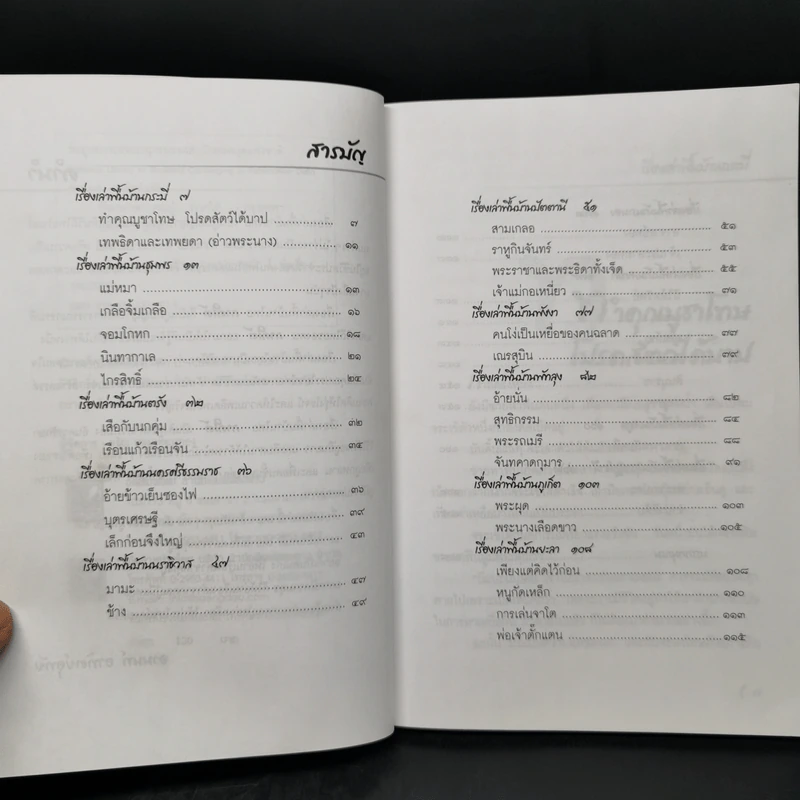 สารบัญ
เรื่องเล่าพื้นบ้านกระบี่ ๗
ทำคุณบูชาโทษ โปรดสัตว์ได้บาป ๗
เทพธิดาและเทพยดา (อ่าวพระนาง) ๑๑
เรื่องเล่าพื้นบ้านชุมพร ๑๓
แม่หมา ๑๓
เกลือจิ้มเกลือ ๑๖
จอมโกหก ๑๘
นินทากาเล ๒๑
ไกรสิทธิ์ ๒๔
เรื่องเล่าพื้นบ้านตรัง ๓๒
เสือกับนกคุ่ม ๓๒
เรือนแก้วเรือนจัน ๓๔
เรื่องเล่าพื้นบ้านนครศรีธรรมราช ๓๖
อ้ายข้าวเย็นซองไฟ ๓๖
บุตรเศรษฐี ๓๙
เล็กก่อนจึงใหญ่ ๔๓
เรื่องเล่าพื้นบ้านนราธิวาส ๔๗
มามะ ๔๗
ช้าง ๔๙
เรื่องเล่าพื้นบ้านปัตตานี ๕๑
สามเกลอ ๕๑
ราหูกินจันทร์ ๕๓
พระราชาและพระธิดาทั้งเจ็ด ๕๕
เจ้าแม่กอเหนี่ยว ๗๑
เรื่องเล่าพื้นบ้านพังงา ๗๗
คนโง่เป็นเหยื่อของคนฉลาด ๗๗
เณรสุบิน ๗๙
เรื่องเล่าพื้นบ้านพัทลุง ๘๒
อ้ายนั่น ๘๒
สุทธิกรรม ๘๔
พระรถเมรี ๘๘
จันทคาดกุมาร ๙๑
เรื่องเล่าพื้นบ้านภูเก็ต ๑๐๓
พระผุด ๑๐๓
พระนางเลือดขาว ๑๐๕
เรื่องเล่าพื้นบ้านยะลา ๑๐๘
เพียงแต่คิดไว้ก่อน ๑๐๘
หนูกัดเหล็ก ๑๑๐
การเล่นจาโต ๑๑๓
พ่อเจ้าตั๊กแตน ๑๑๕